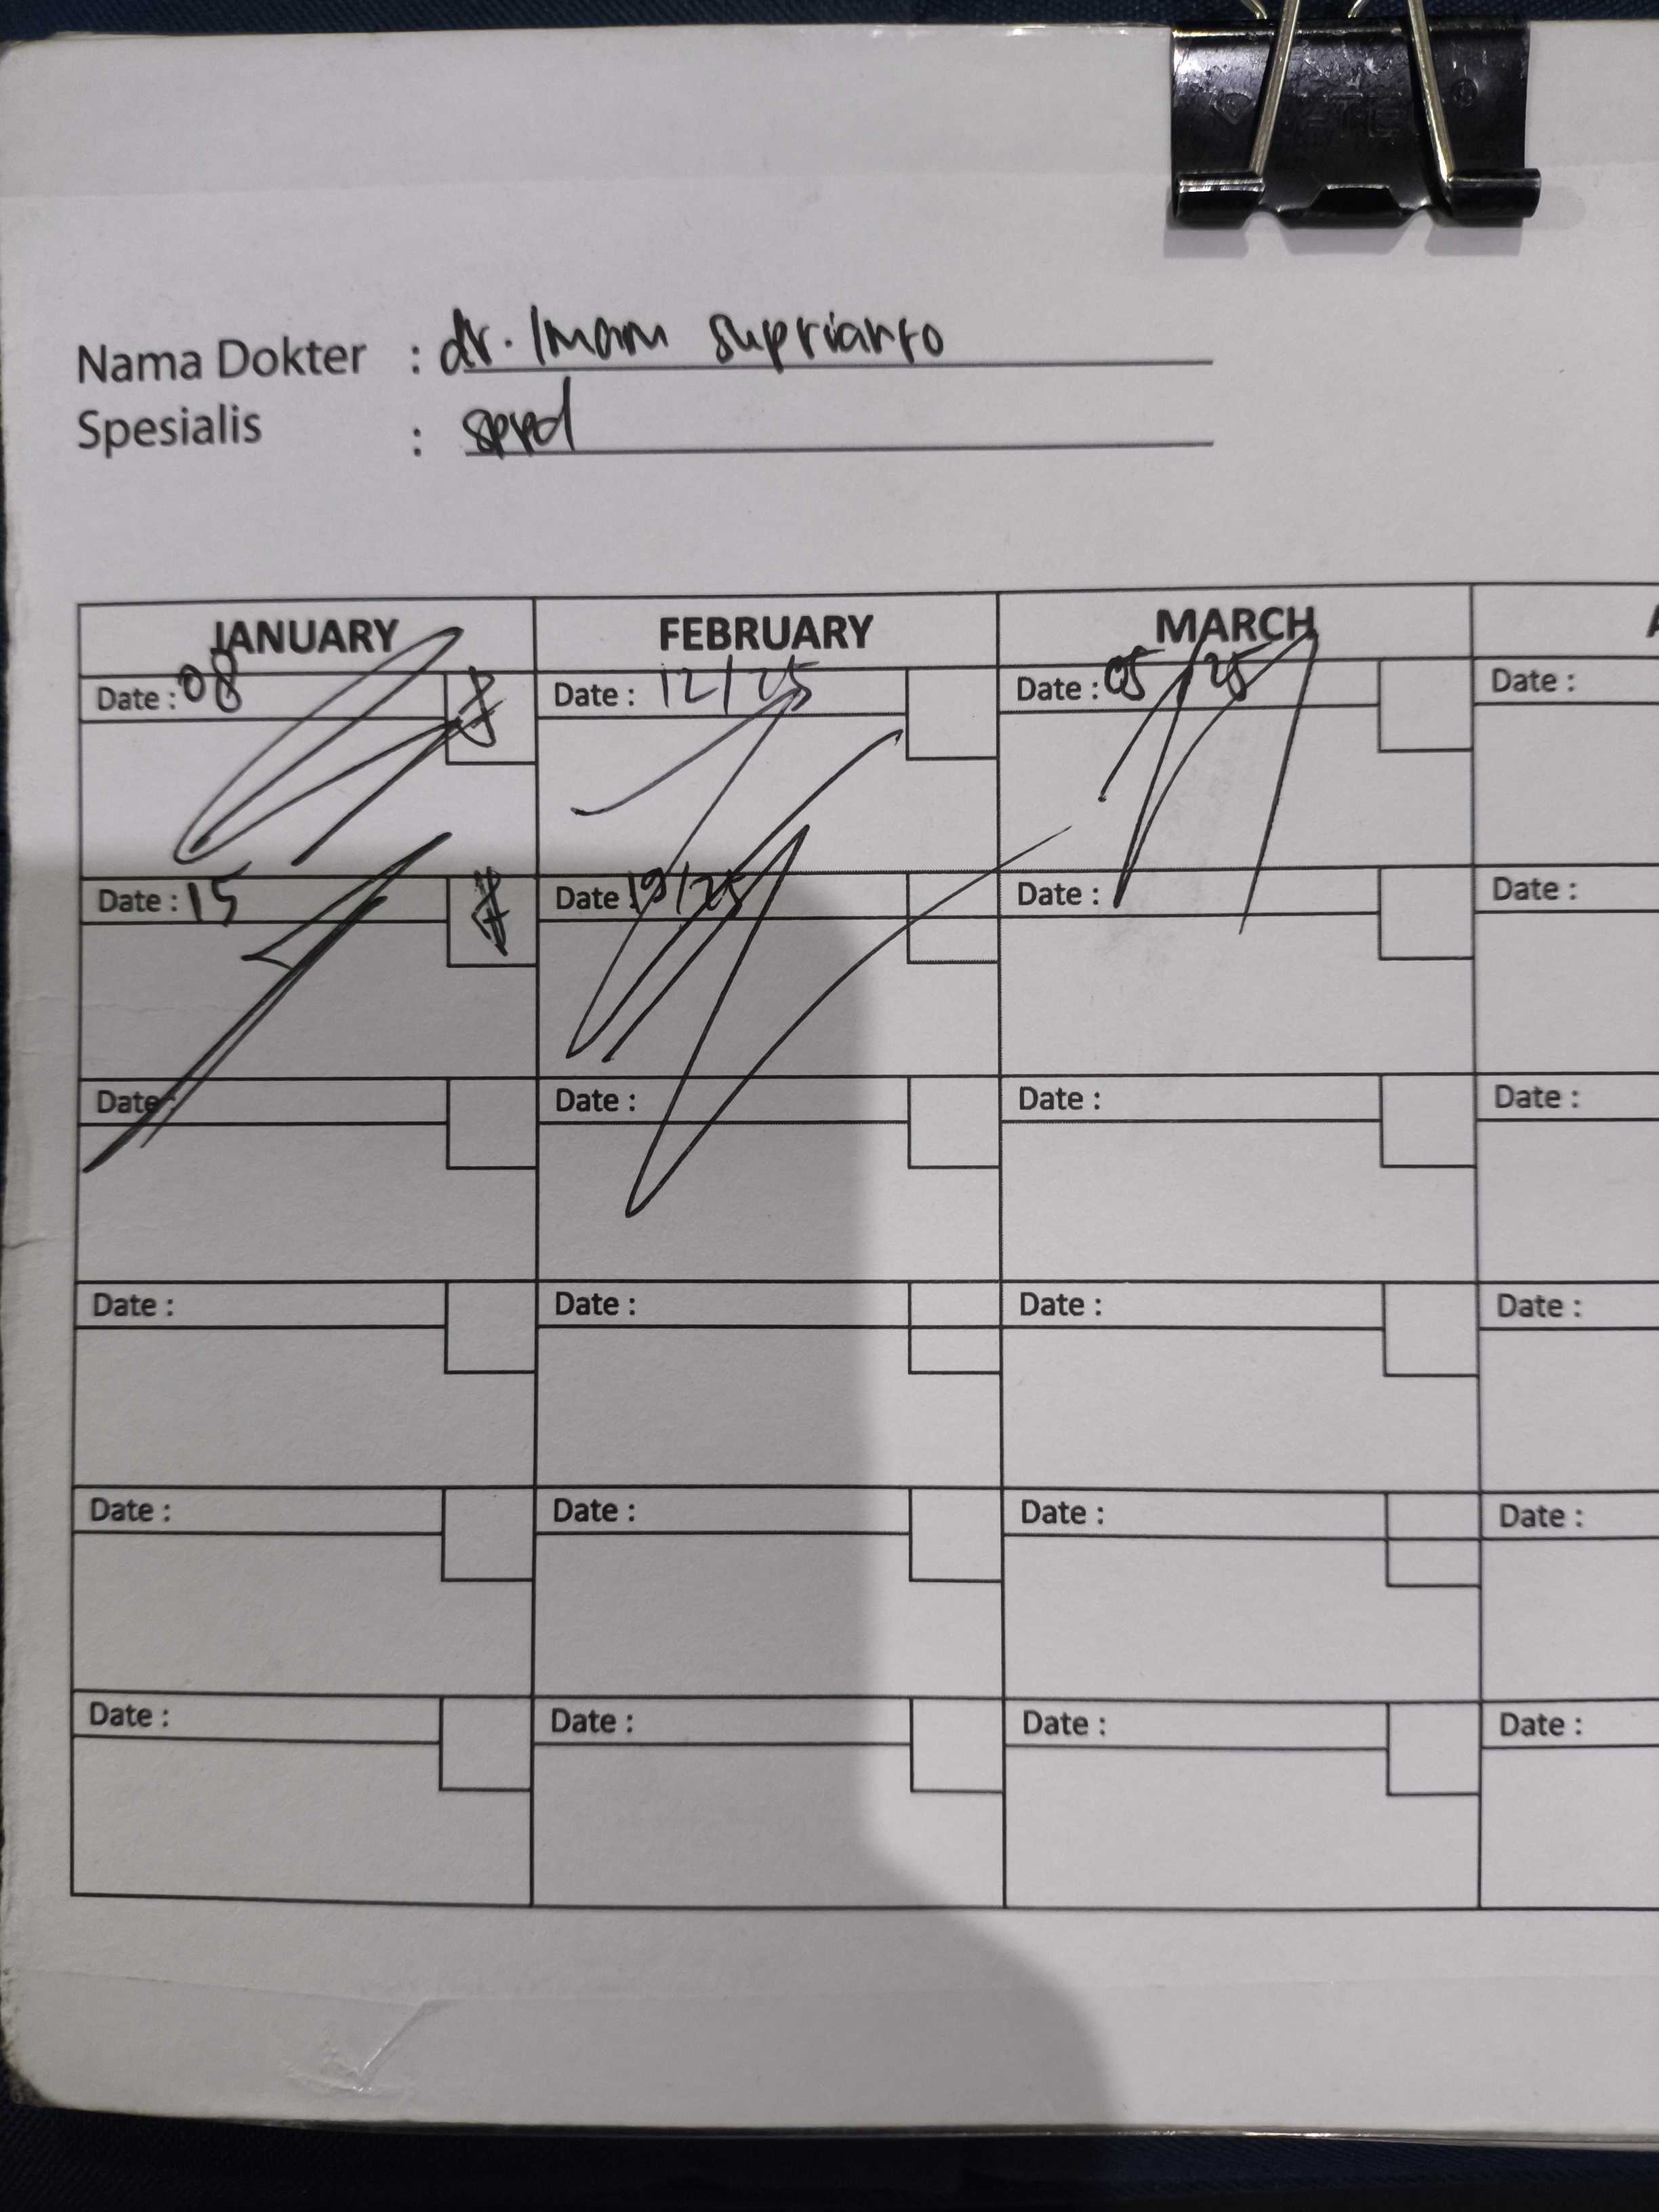 Nama Dokter : dr. Imam suprianto
Spesialis : sppd
JANUARY FEBRUARY MARCH A
Date : 08 Date : 12/25 Date : 05/25 Date :
Date : 15 Date : 19/25 Date : Date :
Date Date : Date : Date :
Date : Date : Date : Date :
Date : Date : Date : Date :
Date : Date : Date : Date :